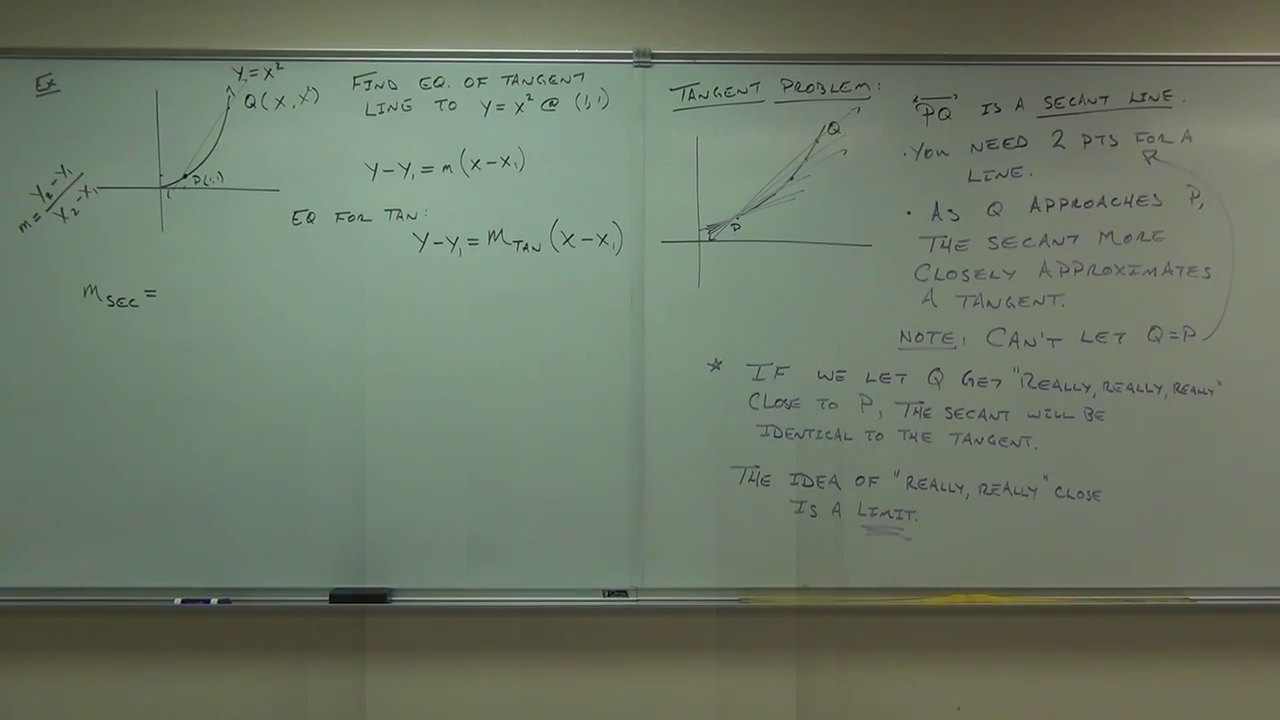 Ex
y=x²
Q(x, x²)
P(1,1)
1
m = y₂-y₁ / x₂-x₁
FIND EQ. OF TANGENT
LINE TO y=x² @ (1,1)
y-y₁=m(x-x₁)
EQ FOR TAN:
y-y₁=m_TAN(x-x₁)
m_SEC=
TANGENT PROBLEM:
Q
P
PQ IS A SECANT LINE.
· YOU NEED 2 PTS FOR A
LINE.
· AS Q APPROACHES P,
THE SECANT MORE
CLOSELY APPROXIMATES
A TANGENT.
NOTE: CAN'T LET Q=P
* IF WE LET Q GET "REALLY, REALLY, REALLY"
CLOSE TO P, THE SECANT WILL BE
IDENTICAL TO THE TANGENT.
THE IDEA OF "REALLY, REALLY" CLOSE
IS A LIMIT.